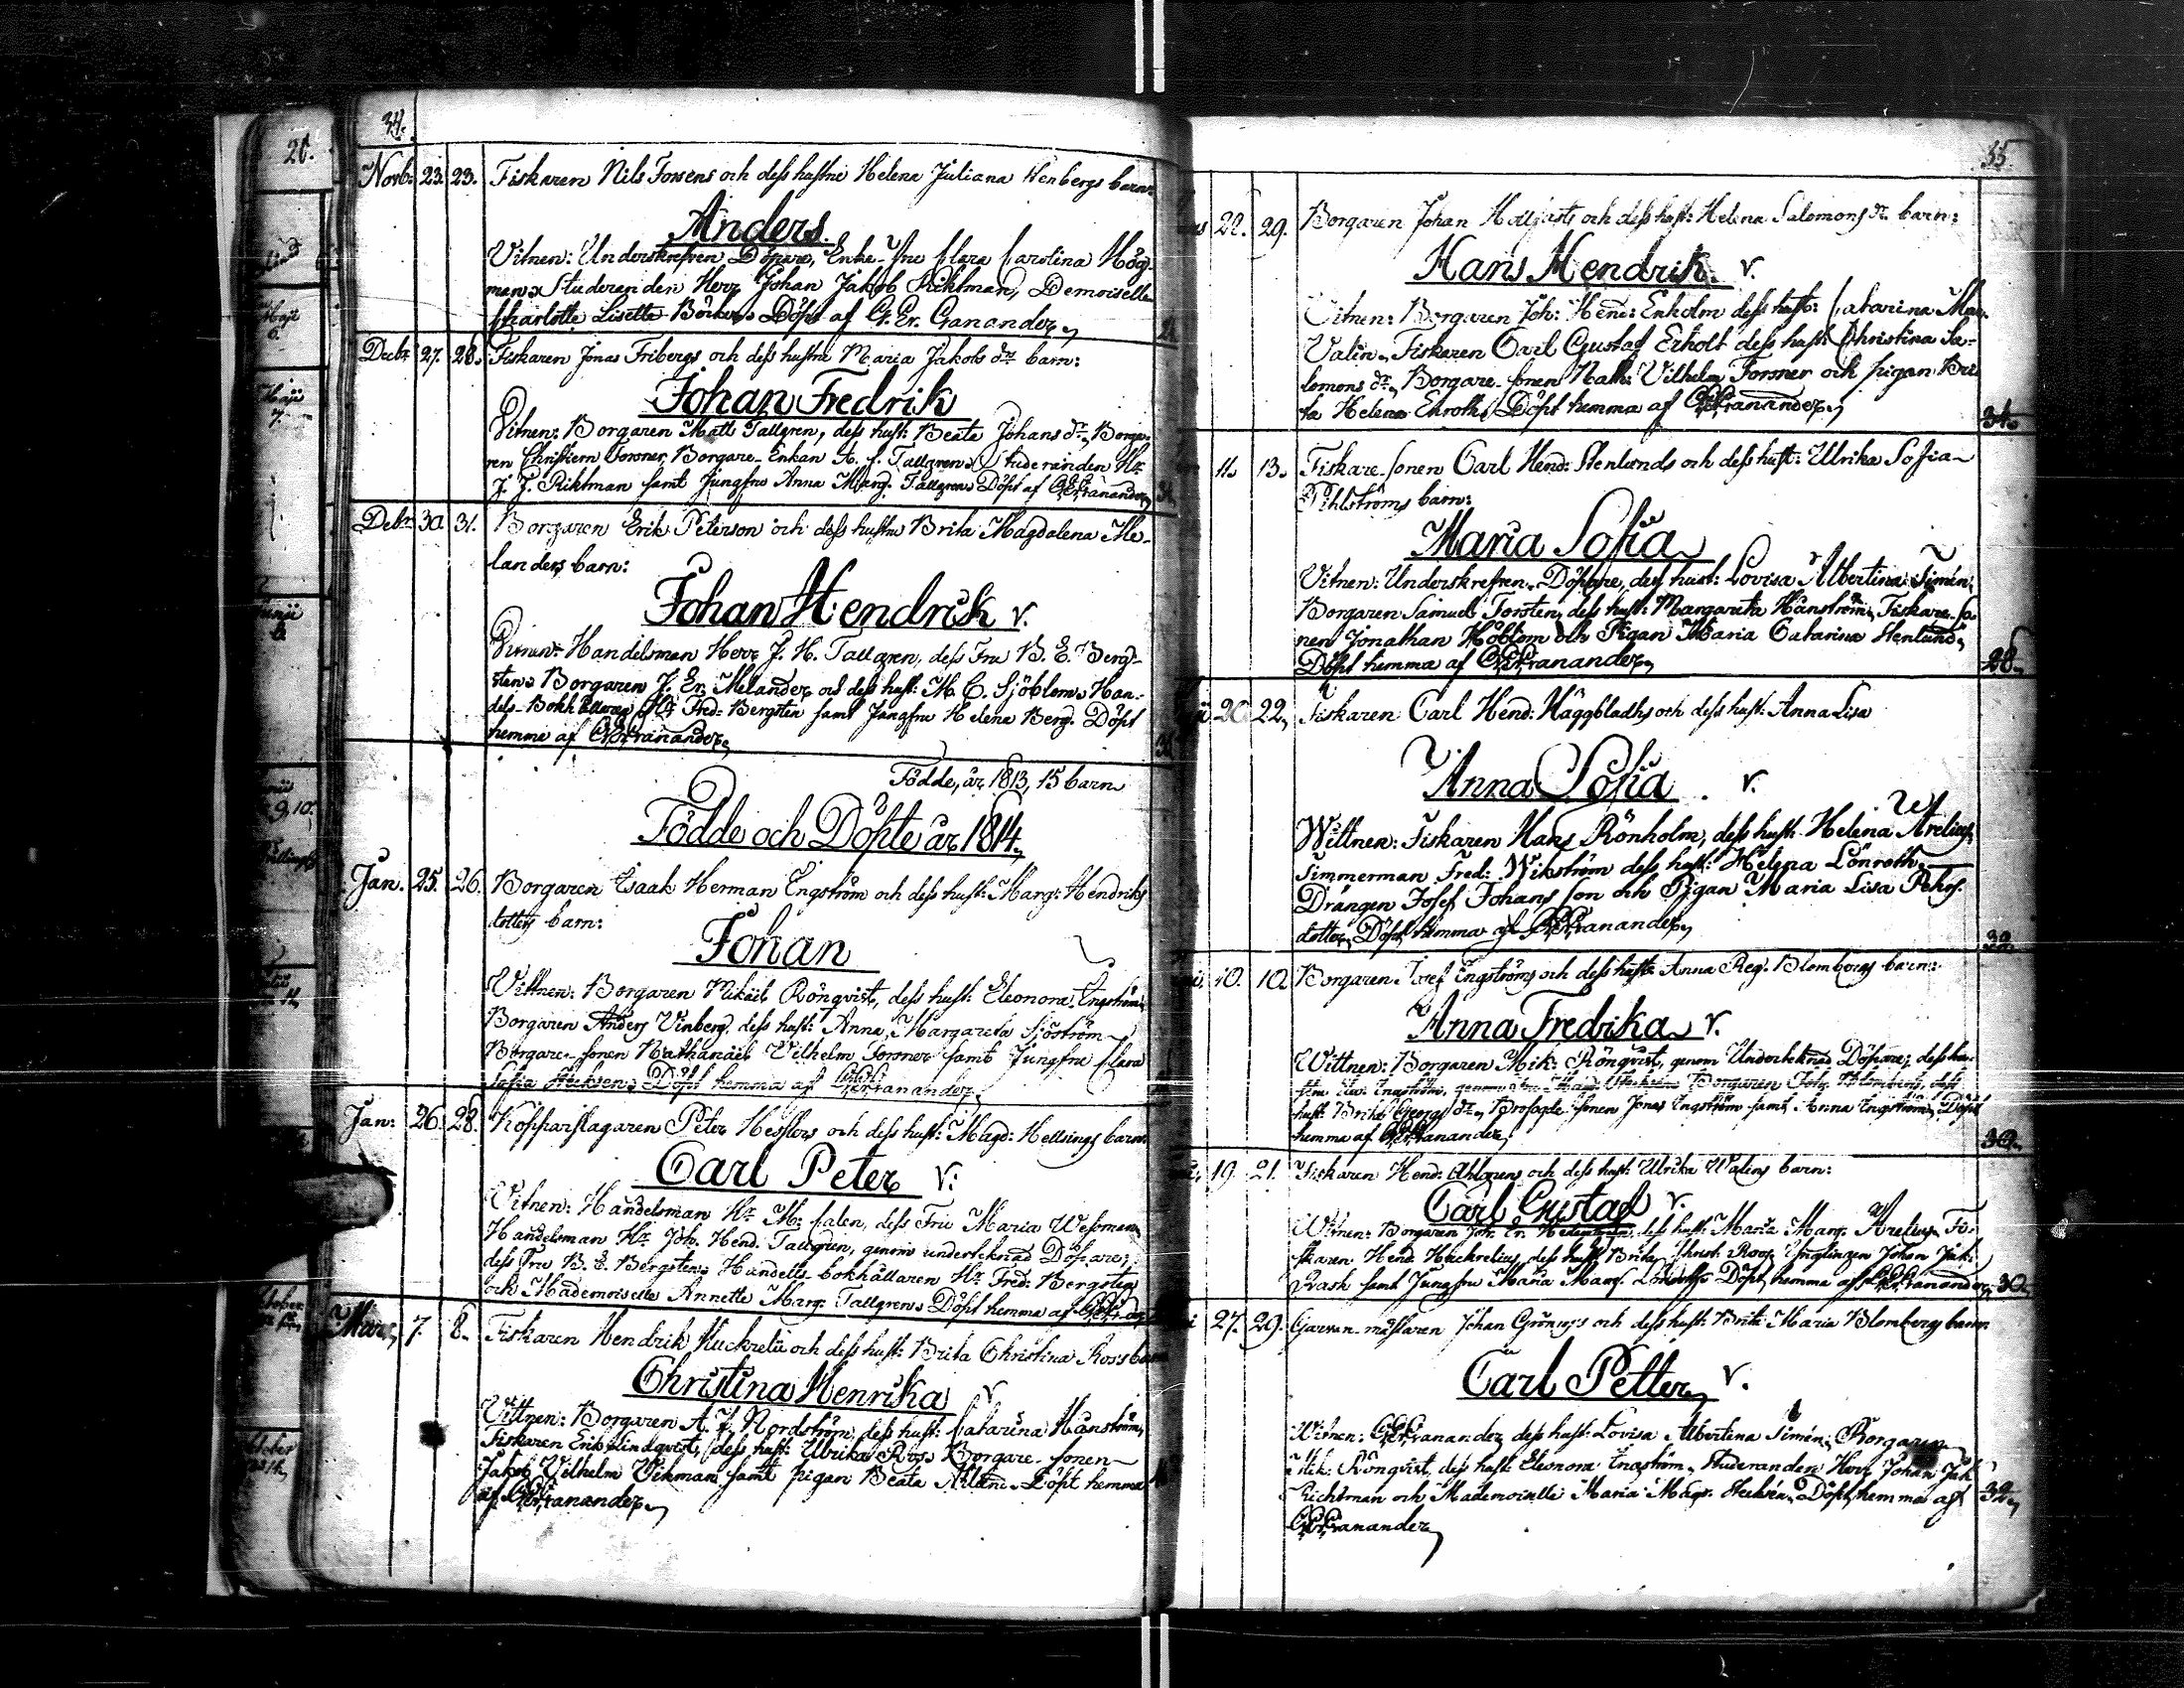 34.
Novb: 23. 23. Fiskaren Nils Forsens och dess hustru Helena Juliana Stenbergs barn:
Anders.
Vitnen: Underskrefven Döpare, Enke-Fru Clara Carolina Hög-
man, Studeranden Herr Johan Jakob Riktman, Demoiselle
Charlotte Lisette Döpt af G. Er. Ganander,
Decbr 27. 28. Fiskaren Jonas Fribergs och dess hustru Maria Jakobs dr barn:
Johan Fredrik
Vitnen: Borgaren Matt Tallgren, dess hust: Beata Johans dr, Borga-
ren Christiern Forsner, Borgare-Enkan A. C. Tallgren, Studeranden Hr
J. J. Riktman samt Jungfru Anna Marg. Tallgren, Döpt af G. Er. Ganander,
Debr 30. 31. Borgaren Erik Peterson och dess hustru Brita Magdalena Me-
landers barn:
Johan Hendrik v.
Vitnen: Handelsman Herr J. H. Tallgren, dess Fru B. E. Berg-
sten, Borgaren J. Er. Melander och dess hust: M. C. Sjöblom, Han-
dels-Bokhållaren Hr Fred: Bergsten samt Jungfru Helena Berg. Döpt
hemma af G. Er. Ganander,
Födde, år 1813, 15 barn
Födde och Döpte år 1814.
Jan. 25. 26. Borgaren Isaak Herman Engström och dess hust: Marg: Hendriks
dotters barn:
Johan
Vittnen: Borgaren Mikael Rönqvist, dess hust: Eleonora Engström,
Borgaren Anders Vinberg, dess hust: Anna Margareta Sjöström
Borgare-sonen Nathanäel Vilhelm Forsner samt Jungfru Clara
Sofia Stecksen, Döpt hemma af G. Er. Ganander,
Jan: 26. 28. Kopparslagaren Peter Hesslers och dess hust: Magd: Hellsings barn:
Carl Peter v:
Vitnen: Handelsman Hr M: Calen, dess Fru Maria Wessman,
Handelsman Hr Joh. Hend. Tallgren, genom underteknad Döpare,
dess Fru B. E. Bergsten, Handels bokhållaren Hr Fred: Bergsten
och Mademoiselle Annette Marg: Tallgren, Döpt hemma af
Mars, 7. 8. Fiskaren Hendrik Huckrelii och dess hust: Brita Christina Ross
Christina Henrika v
Vittnen: Borgaren A. J. Nordström, dess hust: Catarina Hänström,
Fiskaren Erik Lindqvist, dess hust: Ulrika Ross, Borgare-sonen
Jakob Vilhelm Vikman samt pigan Beata Döpt hemma
af G. Er. Ganander,
35.
22. 29. Borgaren Johan Hollfasts och dess hust: Helena Salomons dr barn:
Hans Hendrik. v.
Vitnen: Borgaren Joh: Hend: Enholm dess hust: Catarina Mar.
Valin, Fiskaren Carl Gustaf Erholt dess hust: Christina Sa-
lomons dr, Borgare-sonen Nath: Vilhelm Forsner och pigan Bri
ta Helena Enroth, Döpt hemma af G. Er. Ganander,
34.
11. 13. Fiskare-sonen Carl Hend: Stenlunds och dess hust: Ulrika Sofia
Pihlströms barn:
Maria Sofia
Vitnen: Underskrefven Döpare, dess hust: Lovisa Albertina Simén,
Borgaren Samuel Torsten, dess hust: Margareta Hänström, Fiskare-so-
nen Jonathan Höblom och Pigan Maria Catarina Stenlund,
Döpt hemma af G. Er. Ganander,
28.
20. 22. Fiskaren Carl Hend: Häggbladhs och dess hust: Anna Lisa
Anna Sofia v.
Wittnen: Fiskaren Hans Rönholm, dess hust: Helena Arelius,
Timmerman Fred: Wikström dess hust: Helena Lönroth,
Drängen Josef Johans son och Pigan Maria Lisa Pehrs
dotter, Döpt hemma af G. Er. Ganander,
32.
10. 10. Borgaren Josef Engströms och dess hust: Anna Reg: Blombergs barn:
Anna Fredrika v.
Wittnen: Borgaren Mik: Rönqvist, genom Underteknad Döpare, dess hu-
stru Eleo: Engström, Borgaren Joh: Blomberg, dess
hust: Brita Georgs dr, sonen Jonas Engström samt Anna Engström, Döpt
hemma af G. Er. Ganander,
30.
19. 21. Fiskaren Hend: Ahlgrens och dess hust: Ulrika Walins barn:
Carl Gustaf v.
Witnen: Borgaren Joh: Er. dess hust: Maria Marg. Arelius, Fi-
skaren Hend. Huckrelius, dess hust: Brita Christ: Ross, Ynglingen Johan Jak:
Rask samt Jungfru Maria Marg. Döpt hemma af G. Er. Ganander, 30.
27. 29. Garvare-mästaren Johan Grönings och dess hust: Brita Maria Blombergs barn
Carl Petter, v.
Witnen: G. Er. Ganander, dess hust: Lovisa Albertina Simén, Borgaren
Mik: Rönqvist, dess hust: Eleonora Engström, Studeranden Herr Johan Jak
Richtman och Mademoiselle Maria Magr. Stecksén, Döpt hemma af
G. Er. Ganander,
32.